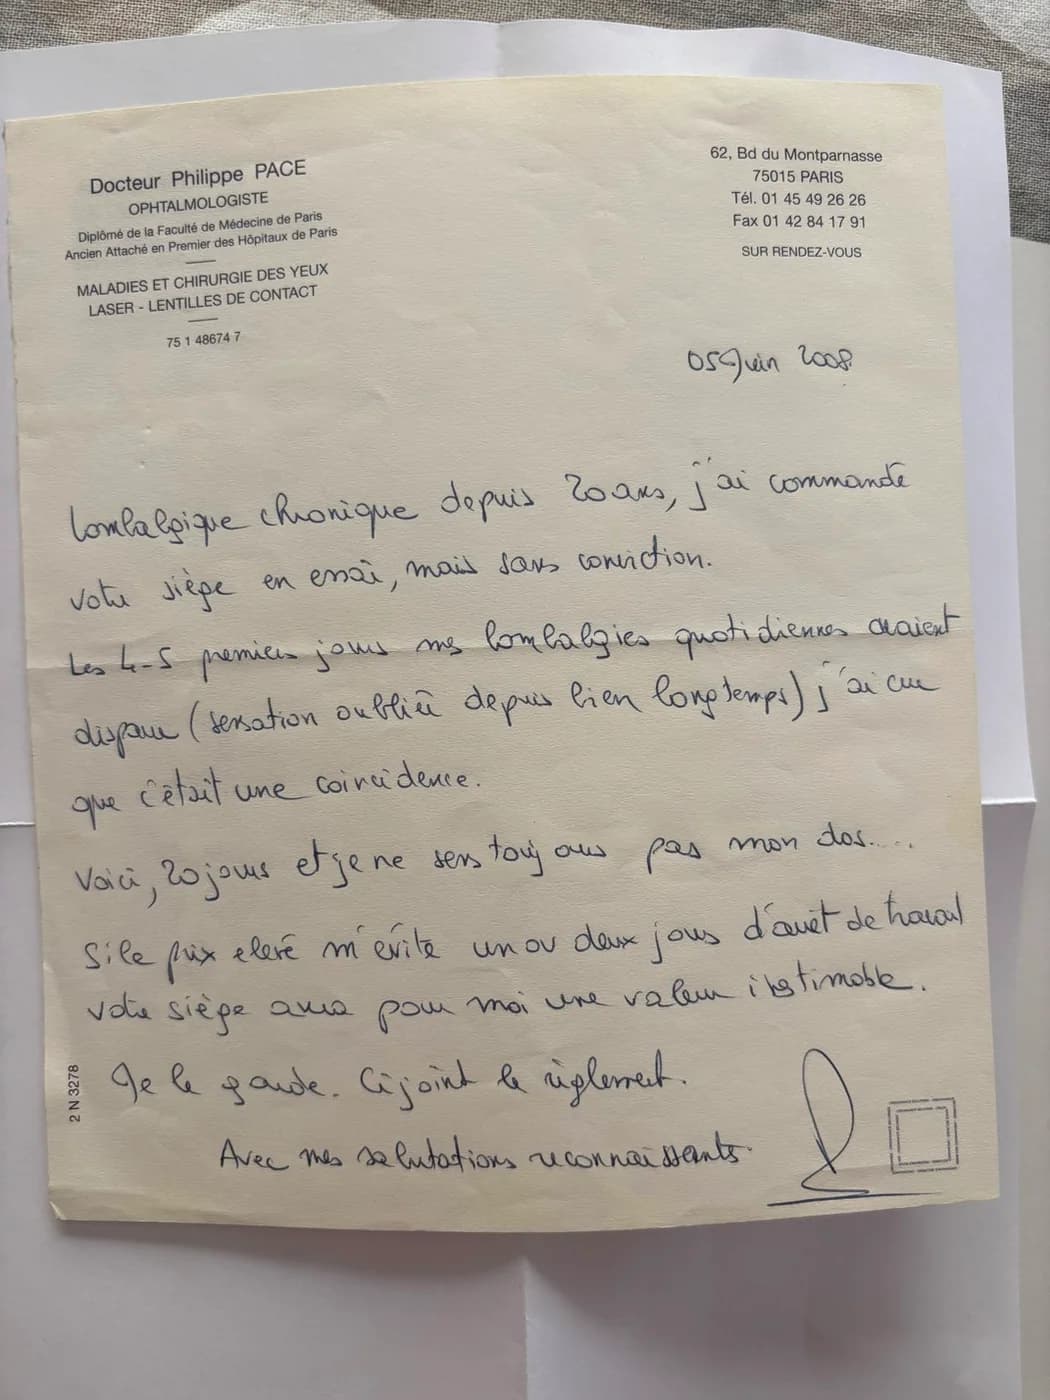 Docteur Philippe PACE
OPHTALMOLOGISTE
Diplômé de la Faculté de Médecine de Paris
Ancien Attaché en Premier des Hôpitaux de Paris
MALADIES ET CHIRURGIE DES YEUX
LASER - LENTILLES DE CONTACT
75 1 48674 7
62, Bd du Montparnasse
75015 PARIS
Tél. 01 45 49 26 26
Fax 01 42 84 17 91
SUR RENDEZ-VOUS
05 Juin 2008
Lombalgique chronique depuis 20 ans, j'ai commandé
votre siège en essai, mais sans conviction.
Les 4-5 premiers jours mes lombalgies quotidiennes avaient
disparu (sensation oubliée depuis bien longtemps) j'ai cru
que c'était une coincidence.
Voici, 20 jours et je ne sens toujours pas mon dos.....
Si le prix elevé m'évite un ou deux jours d'arrêt de travail
votre siège aura pour moi une valeur inestimable.
Je le garde. Ci joint le règlement.
Avec mes salutations reconnaissantes.
2 N 3278